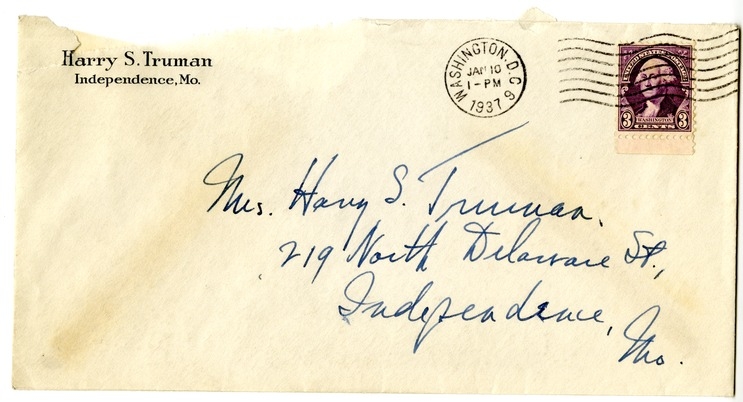 Harry S. Truman
Independence, Mo.
WASHINGTON, D.C.
JAN 10
1-PM
1937
9
UNITED STATES POSTAGE
3 WASHINGTON 3
CENTS
Mrs. Harry S. Truman,
219 North Delaware St.,
Independence,
Mo.